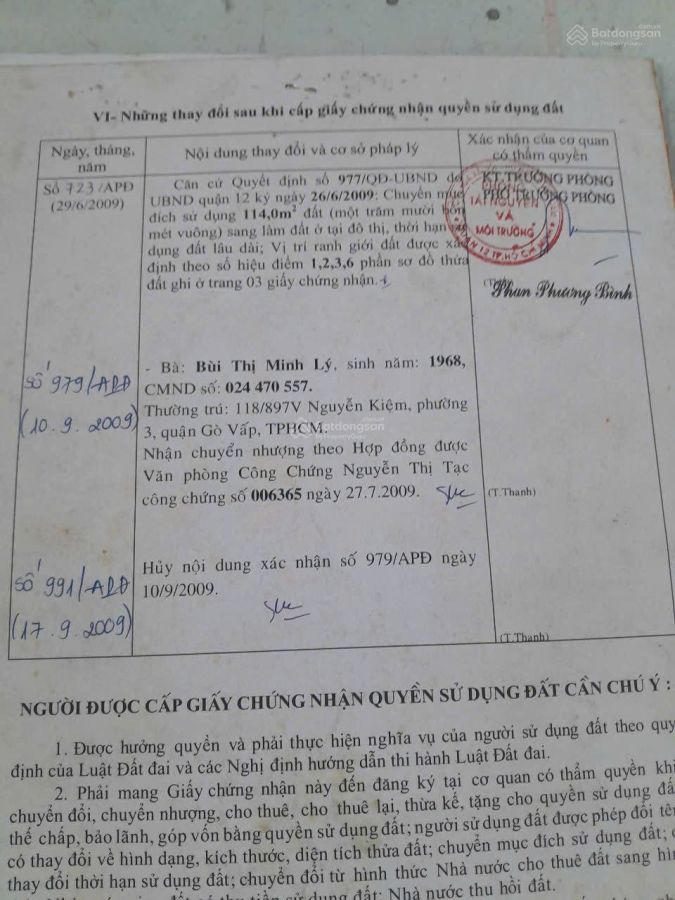 Batdongsan
by PropertyGuru
VI- Những thay đổi sau khi cấp giấy chứng nhận quyền sử dụng đất
Ngày, tháng, năm
Nội dung thay đổi và cơ sở pháp lý
Xác nhận của cơ quan có thẩm quyền
Số 723/APĐ
(29/6/2009)
Căn cứ Quyết định số 977/QĐ-UBND do
UBND quận 12 ký ngày 26/6/2009: Chuyển mục
đích sử dụng 114,0m² đất (một trăm mười bốn
mét vuông) sang làm đất ở tại đô thị, thời hạn
dụng đất lâu dài; Vị trí ranh giới đất được xá
định theo số hiệu điểm 1,2,3,6 phần sơ đồ thửa
đất ghi ở trang 03 giấy chứng nhận.
KT.TRƯỞNG PHÒNG
PHÓ TRƯỞNG PHÒNG
TÀI NGUYÊN
VÀ
MÔI TRƯỜNG
Phan Phương Bình
Số 979/APĐ
(10.9.2009)
- Bà: Bùi Thị Minh Lý, sinh năm: 1968,
CMND số: 024 470 557.
Thường trú: 118/897V Nguyễn Kiệm, phường
3, quận Gò Vấp, TPHCM.
Batdongsan
Nhận chuyển nhượng theo Hợp đồng được
Văn phòng Công Chứng Nguyễn Thị Tạc
công chứng số 006365 ngày 27.7.2009.
(T.Thanh)
Số 991/APĐ
(17.9.2009)
Hủy nội dung xác nhận số 979/APĐ ngày
10/9/2009.
(T.Thanh)
NGƯỜI ĐƯỢC CẤP GIẤY CHỨNG NHẬN QUYỀN SỬ DỤNG ĐẤT CẦN CHÚ Ý :
1. Được hưởng quyền và phải thực hiện nghĩa vụ của người sử dụng đất theo quy
định của Luật Đất đai và các Nghị định hướng dẫn thi hành Luật Đất đai.
2. Phải mang Giấy chứng nhận này đến đăng ký tại cơ quan có thẩm quyền khi
chuyển đổi, chuyển nhượng, cho thuê, cho thuê lại, thừa kế, tặng cho quyền sử dụng đấ
thế chấp, bảo lãnh, góp vốn bằng quyền sử dụng đất; người sử dụng đất được phép đổi tên
có thay đổi về hình dạng, kích thước, diện tích thửa đất; chuyển mục đích sử dụng đất;
thay đổi thời hạn sử dụng đất; chuyển đổi từ hình thức Nhà nước cho thuê đất sang hìn
sử dụng đất; Nhà nước thu hồi đất.